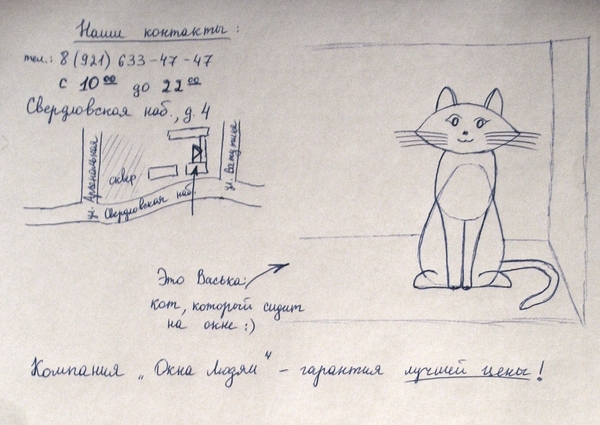 Наши контакты:
тел.: 8 (921) 633-47-47
с 10 00 до 22 00
Свердловская наб., д. 4
ул. Арсенальная
сквер
Свердловская наб.
ул. Ватутина
Это Васька:
кот, который сидит
на окне :)
Компания „Окна Людям“ - гарантия лучшей цены!